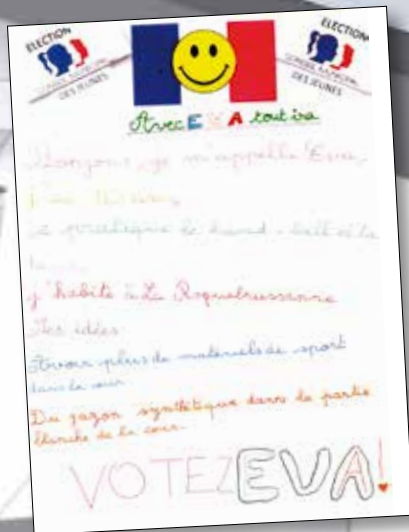 ELECTION
CONSEIL MUNICIPAL
DES JEUNES
ELECTION
CONSEIL MUNICIPAL
DES JEUNES
Avec EVA tout ira
Bonjour, je m'appelle Eva,
J'ai ans,
je pratique le hand-ball et la
j'habite à La Roquebrussanne
Mes idées
Avoir plus de matériels de sport
dans la cour
Du gazon synthétique dans la partie
blanche de la cour.
VOTEZ EVA!